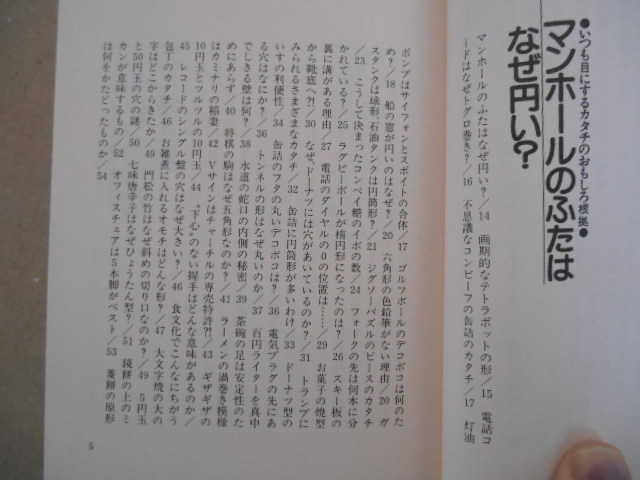 ●いつも目にするカタチのおもしろ根拠●
マンホールのふたは
なぜ円い？
マンホールのふたはなぜ円い？／14　画期的なテトラポットの形／15　電話コ
ードはなぜトグロ巻き？／16　不思議なコンビーフの缶詰のカタチ／17　灯油
ポンプはサイフォンとスポイトの合体／17　ゴルフボールのデコボコは何のた
め？／18　船の窓が円いのはなぜ？／20　六角形の色鉛筆がない理由／20　ガ
スタンクは球形、石油タンクは円筒形？／21　ジグソーパズルのピースのカタチ
／23　こうして決まったコンペイ糖のイボの数／24　フォークの先は何本に分
かれている？／25　ラグビーボールが楕円形になったのは？／26　スキー板の
裏に溝がある理由／27　電話のダイヤルの0の位置は……／29　お菓子の焼型
から靴底へ?!／30　なぜ、ドーナツには穴があいているのか？／31　トランプに
みられるさまざまなカタチ／32　缶詰に円筒形が多いわけ／33　ドーナツ型の
いすの利便性／34　缶詰のフタの丸いデコボコは？／36　電気プラグの先にあ
る穴はなにか？／36　トンネルの形はなぜ丸いのか／37　百円ライターを真中
でしきる壁は何？／38　水道の蛇口の内側の秘密／39　茶碗の足は安定性のた
めにあらず／40　将棋の駒はなぜ五角形なのか？／41　ラーメンの渦巻き模様
はカミナリの稲妻／42　Vサインはチャーチルの専売特許?!／43　ギザギザの
10円玉とツルツルの10円玉／44　“下心”のない握手はどんな意味があるのか／
45　レコードのシングル盤の穴はなぜ大きい？／46　食文化でこんなにちがう
包丁のカタチ／46　お雑煮に入れるオモチはどんな形？／47　大文字焼の大の
字はどこからきたか／49　門松の竹はなぜ斜めの切り口なのか？／49　5円玉
と50円玉の穴の謎／50　七味唐辛子はなぜひょうたん型？／51　鏡餅の上のミ
カンが意味するもの／52　オフィスチェアは5本脚がベスト／53　菱餅の原形
は何をかたどったものか／54
5